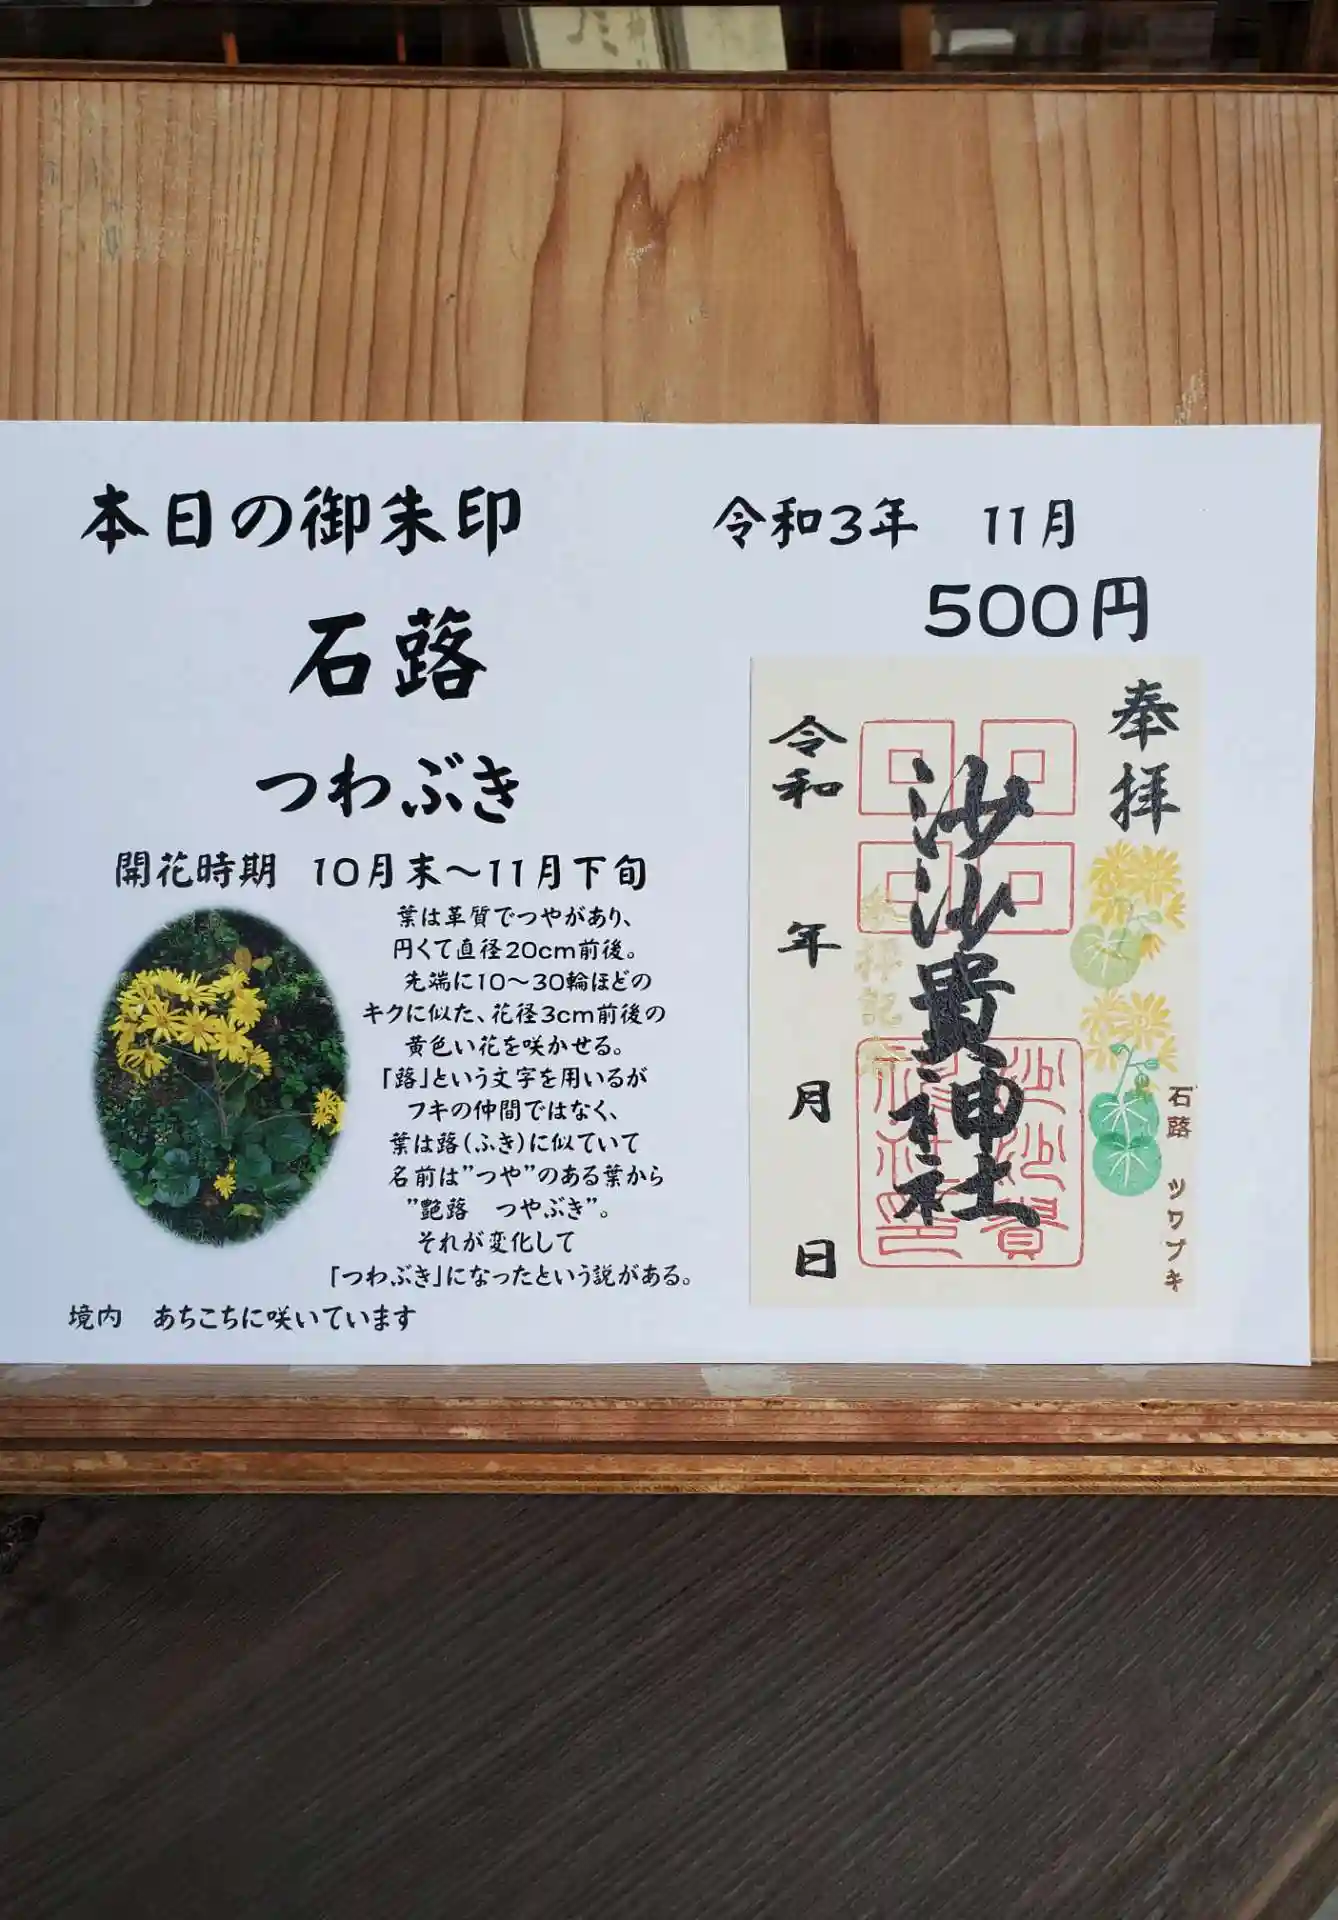 本日の御朱印
石蕗
つわぶき
開花時期　10月末～11月下旬
葉は革質でつやがあり、
円くて直径20cm前後。
先端に10～30輪ほどの
キクに似た、花径3cm前後の
黄色い花を咲かせる。
「蕗」という文字を用いるが
フキの仲間ではなく、
葉は蕗(ふき)に似ていて
名前は"つや"のある葉から
"艶蕗　つやぶき"。
それが変化して
「つわぶき」になったという説がある。
境内　あちこちに咲いています
令和3年　11月
500円
奉拝
石蕗　ツワブキ
沙沙貴神社
令和　年　月　日